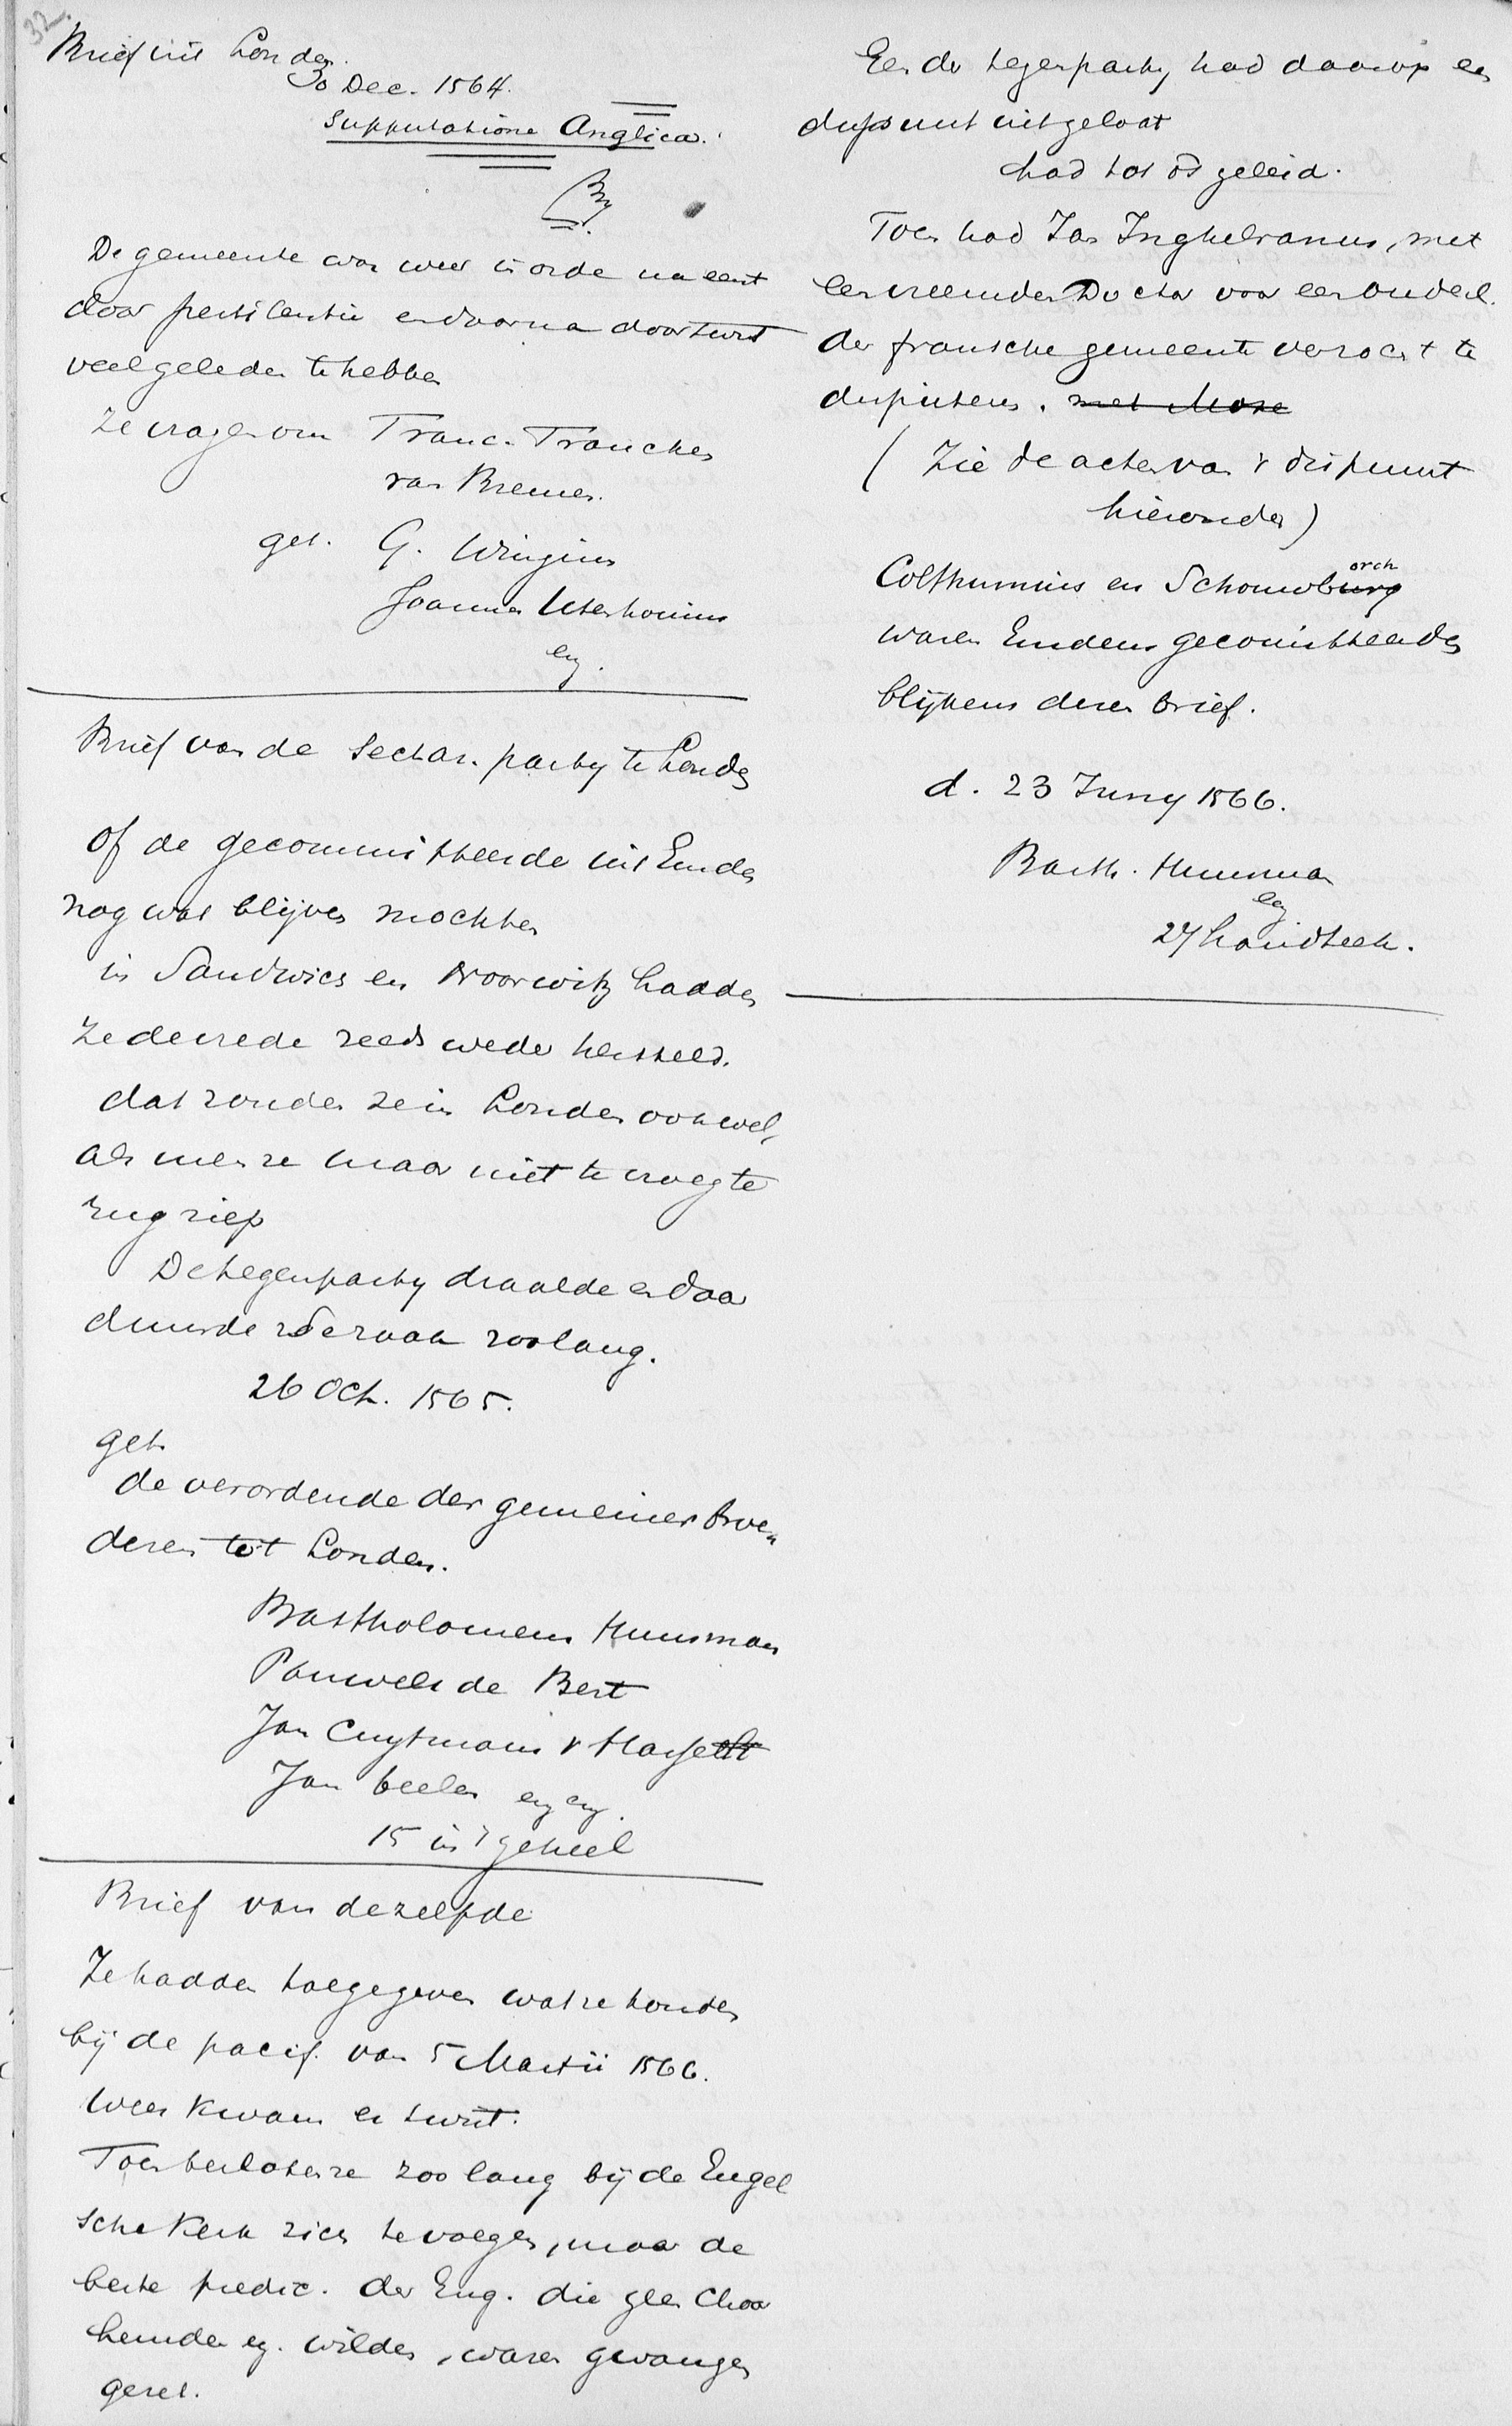 32.
Brief uit Londen.
30 Dec. 1564.
supputatione Anglica.
De gemeente was weer in orde na eerst
door pestilentie en daarna door twist
veel geleden te hebben
Ze vragen om Franc. Francken
van Bremen.
get. G. Wingius
Joannes Utenhovius
eg.
Brief van de sectar. party te Londen
of de gecommitteerde uit Emden
nog wat blijven mochten
in Sandwics en Noorwitz hadden
ze de vrede reeds weder hersteld.
dat zouden ze in Londen ook wel,
als men ze maar niet te vroeg te
rug riep
De tegenparty draalde en daar
duurde de zaak zoolang.
26 Oct. 1565.
get.
de verordende der gemeiner broe
deren tot Londen.
Bartholomeus Huusman
Pauwels de Bert
Jan Cuytmans v Hasselt
Jan beelen eg eg.
15 in 't geheel
Brief van dezelfde
Ze hadden toegegeven wat ze konden
bij de pacif. van 5 Martii 1566.
weer kwam er twist.
Toen besloten ze zoo lang bij de Engel
sche Kerk zich te voegen, maar de
beste predic. der Eng. die geen Choor
hemden eg. wilden, waren gevangen
gezet.
Een der tegenparty had daarop een
dispuut uitgelokt
had tot os geleid.
Toen had Jan Inghelramus, met
een vreemden Doctor voor een ouderl.
der fransche gemeente verzocht te
disputeren. met Mose
(Zie de acten van 't dispuut
hieronder)
Colthunius en Schouwburg orch
waren Emdens gecomitteerden
blijkens dezen brief.
d. 23 Juny 1566.
Barth. Huusman
eg
27 handteek.